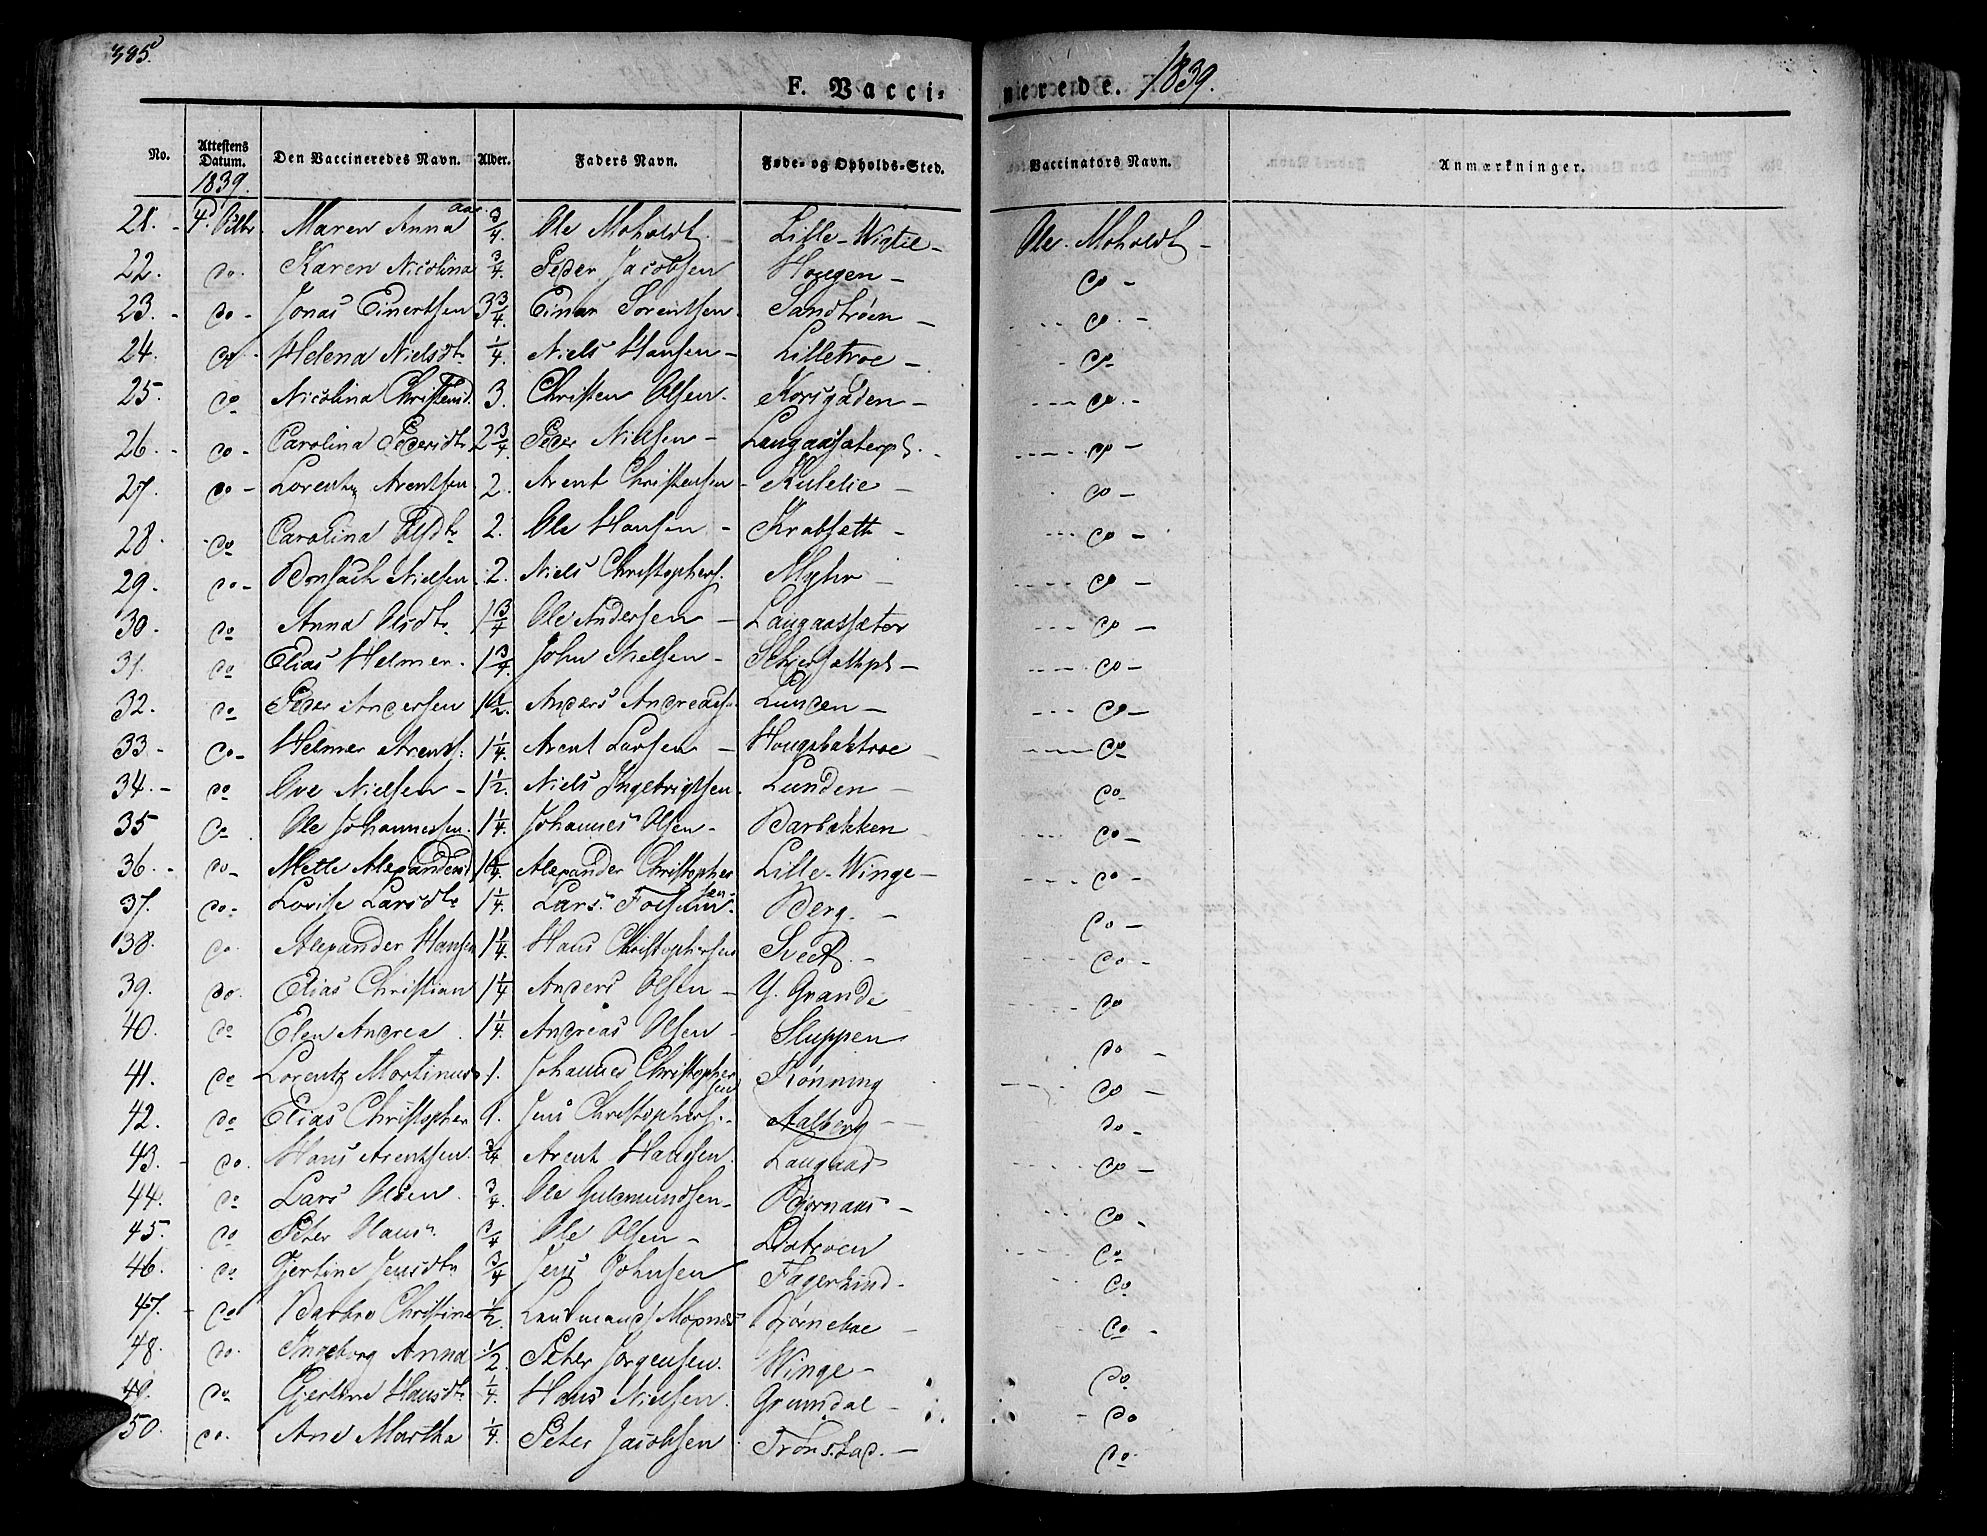 385.
F. Vacci- nerede. 1839.
No. Attestens Datum. Den Vaccineredes Navn. Alder. Faders Navn. Føde- og Opholds-Sted. Vaccinators Navn. Anmærkninger.
1839.
aar
21. - 4d Octbr Maren Anna 3/4. Ole Moholdt - Lille-Wigtil - Ole Moholdt -
22. do. Karen Nicolina 3/4. Peder Jacobsen Hougen - do -
23. - do - Jonas Einertsen 3 3/4. Einar Lorentsen Sandtrøen - do. -
24. do - Helena Nielsdt. 1/4 Niels Hansen - Lilletroe - do-
25. do Nicolina Christensd. 3. Christen Olsen. Korsgaden - do. -
26. - do - Carolina Pedersdt. 2 3/4 Peder Nielsen - Laugaassæterpl. do -
27. do - Lorentz Arentsen 2. Arent Christensen - Kulelie - do -
28. do Carolina Olsdt. 2. Ole Hansen - Krabsæth - do -
29. do - Nielsen 2. Niels Christophers. Myhr - do -
30. do Anna Olsdt. 1 3/4 Ole Andersen - Laugaassæter do -
31. do Elias Helmer. 1 3/4. John Nielsen - pl - do -
32. do Peder Andersen 1 1/2. Anders Andreas. Lunden - do -
33 - do - Helmer Arents. 1 1/4. Arent Larsen - Hougsbaktroe do
34. - do Ove Nielsen - 1 1/2. Niels Ingebrigtsen Lunden - do
35 do. Ole Johannessen. 1 1/4. Johannes Olsen - Barbakken do -
36. - do - Mette Alexandersd 1 1/4. Alexander Christopher Lille-Winge - do -
sen-
37. do - Lovise Larsdt. 1 1/4. Lars Berg. - do -
38. do. Alexander Hansen 1 1/4. Hans Christophersen - do -
39. do. Elias Christian 1 1/4 Anders Olsen - Y. Grande do
40. do Elen Andrea. 1 1/4. Andreas Olsen - Sluppen do -
41. do Lorentz Martinus 1. Johannes Christopher Rønning do -
sen
42. do Elias Christopher 1. Jens Christophers. - Aalberg - do -
43. - do. Hans Arentsen. 3/4 Arent Hansen. Laugaas do -
44. do Lars Olsen. 3/4. Ole Gudmundsen - Bjørnaas - do -
45. do Peter Olaus 3/4 Ole Olsen - Liatroen do
46. do. Gjertine Jensdt. 3/4 Jens Johnsen Fagerhind - do
47. - do Barbro Christine 1/2. Landmand Moxnes Bjørneboe - do -
48. do. Ingeborg Anna 1/2 Peter Jørgensen. Winge - do
49. do. Gjertine Hansdt. 1/4. Hans Nielsen. Grumdal - do
50. do. Ane Martha 1/4 Peter Jacobsen Trønstad. - do